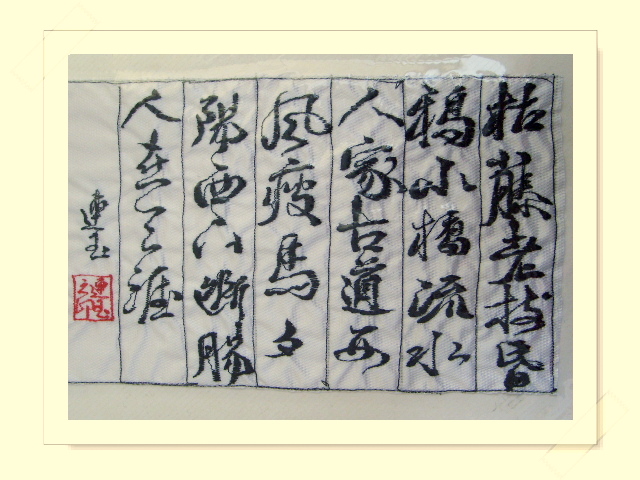 枯藤老樹昏
鴉小橋流水
人家古道西
風瘦馬夕
陽西下斷腸
人在天涯
連玉